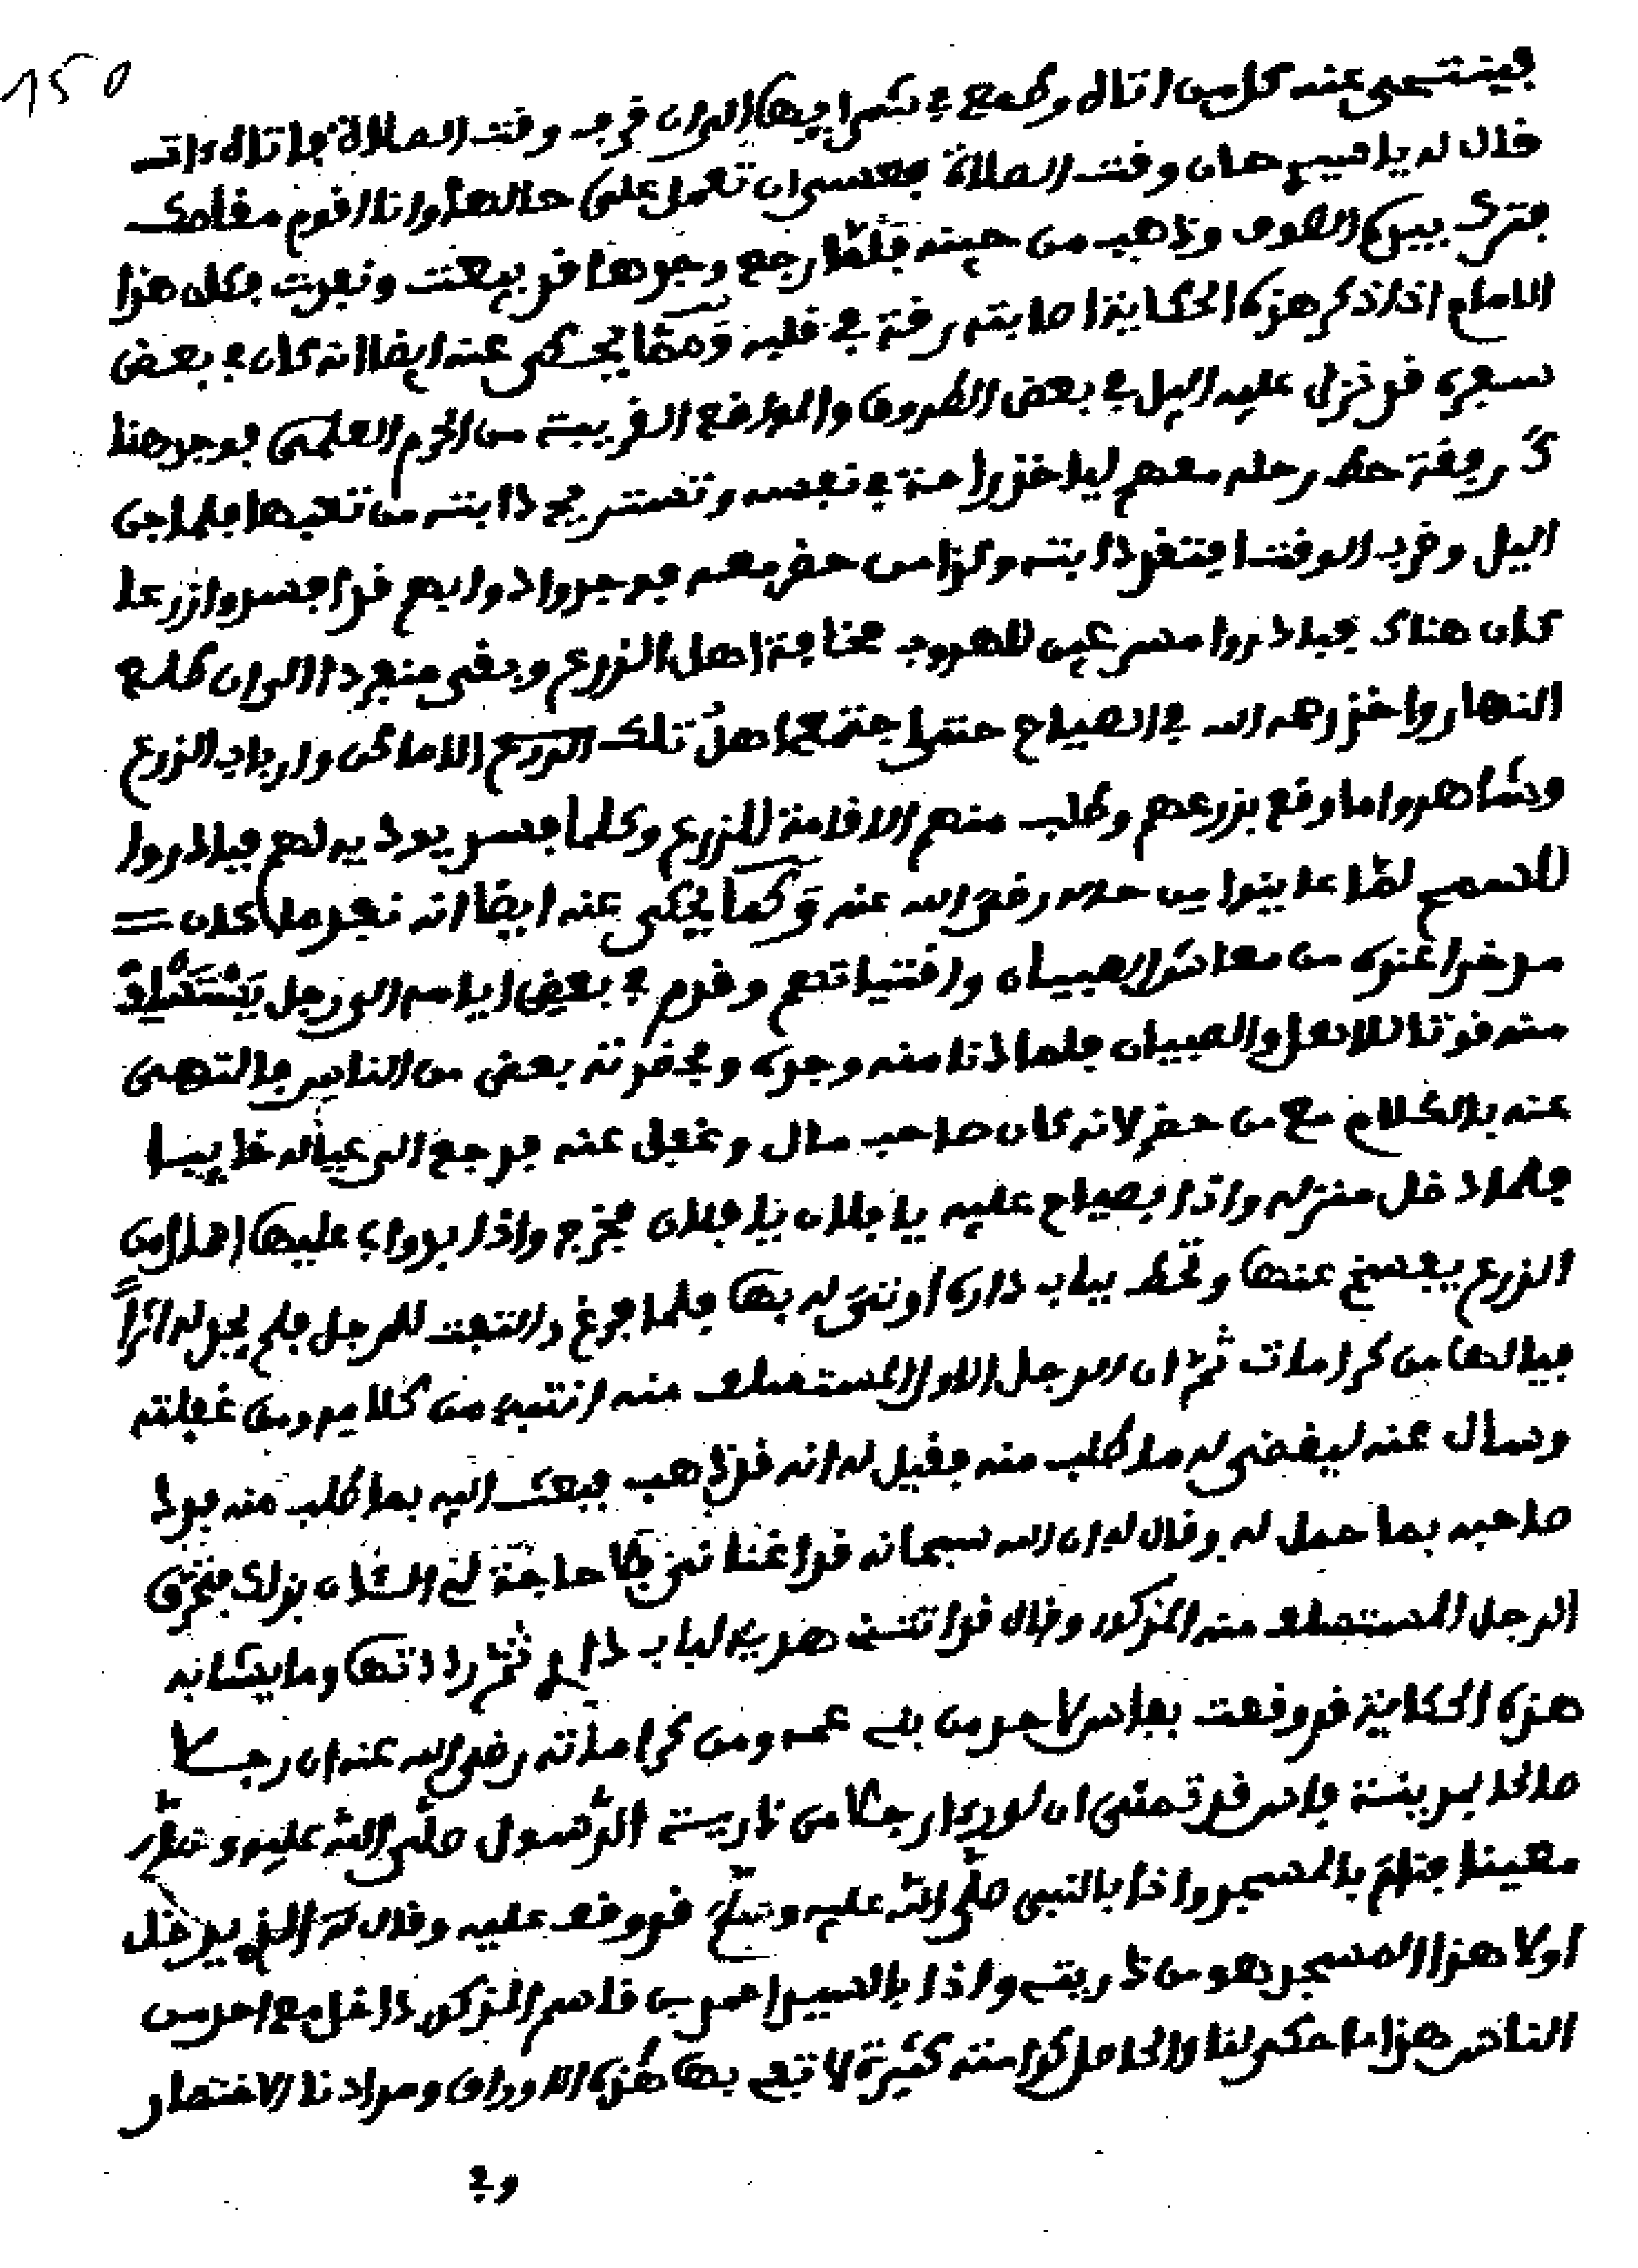 150
فينتحى عنه كل من اتاه وطمع في شرائها الى ان قرب وقت الصلاة فاتاه رات
قال له يا فقيه حان وقت الصلاة فعسى ان تعمل على حالها وانا اقوم مقامك
فترك بيده الصوف وذهب من حينه فلما رجع وجدها قد بيعت ونفدت فكان هذا
الامام اذا ذكر هذه الحكاية اصابته رقة في قلبه ومما يحكى عنه ايضا انه كان في بعض
سفره قد نزل عليه اليل في بعض الطروق والمواضع القريبة من الحرم العلمي فوجد هنا
ك رفقة حط رحله معهم لياخذ راحة في نفسه وتستريح دابته من تعبها فلما جن
اليل وقرب الوقت افتقد دابته وكذا من حضر معه فوجدوا دوابهم قد افسدوا زرعا
كان هناك فبادروا مسرعين للهروب مخافة اهل الزرع وبقي منفردا الى ان طلع
النهار واخذ رحمه الله في الصياح حتى اجتمع اهل تلك الزرع الاماكن وارباب الزرع
وشاهدوا ما وقع بزرعهم وطلب منهم الاقامة للزرع وكلما فسد يوديه لهم فبادروا
للسمح لما عاينوا من حاله رضي الله عنه وكما يحكى عنه ايضا انه نفد ما كان =
مدخرا عنده من معاش الصبيان واقتياتهم وقدم في بعض ايامه الى رجل يَتَسَلَّفُ
منه قوتا للاهل والصبيان فلما دنا منه وجده وبحضرته بعض من الناس فالتهى
عنه بالكلام مع من حضر لانه كان صاحب مال وغفل عنه فرجع الى عياله خايبا
فلما دخل منزله واذا بصياح عليه يا فلان يا فلان فخرج واذا بدواب عليها احمال من
الزرع يفسخ عنها وتحط بباب داره اوتي له بها فلما فرغ والتفت للرجل فلم يجد له اثرًا
فيا لها من كرامات ثم ان الرجل الاول المستسلف منه انتبه من كلامه ومن غفلته
وسال عنه ليقضى له ما طلب منه فقيل له انه قد ذهب فبعث اليه بما طلب منه فرد
صاحبه بما حمل له وقال له ان الله سبحانه قد اغنانى فلا حاجة لي الان بذلك فتحرق
الرجل المستسلف منه المذكور وقال قد اتتني هدية لباب داري ثم رددتها وما يشابه
هذه الحكاية قد وقعت بفاس لاحد من بنى عمه ومن كراماته رضي الله عنه ان رجلا
صالحا بمدينة فاس قد تمنى ان لو راى رجلا من ذرية الرسول صلى الله عليه وسلم
معينا فنام بالمسجد واذا بالنبي صلى الله عليه وسلم قد وقف عليه وقال له الذي يدخل
اولا هذا المسجد هو من ذريته واذا بالسيد احمد بن قاسم المذكور داخل مع احد من
الناس هذا ما حكى لنا والحاصل كرامته كثيرة لا تفي بها هذه الاوراق ومرادنا الاختصار
وفي